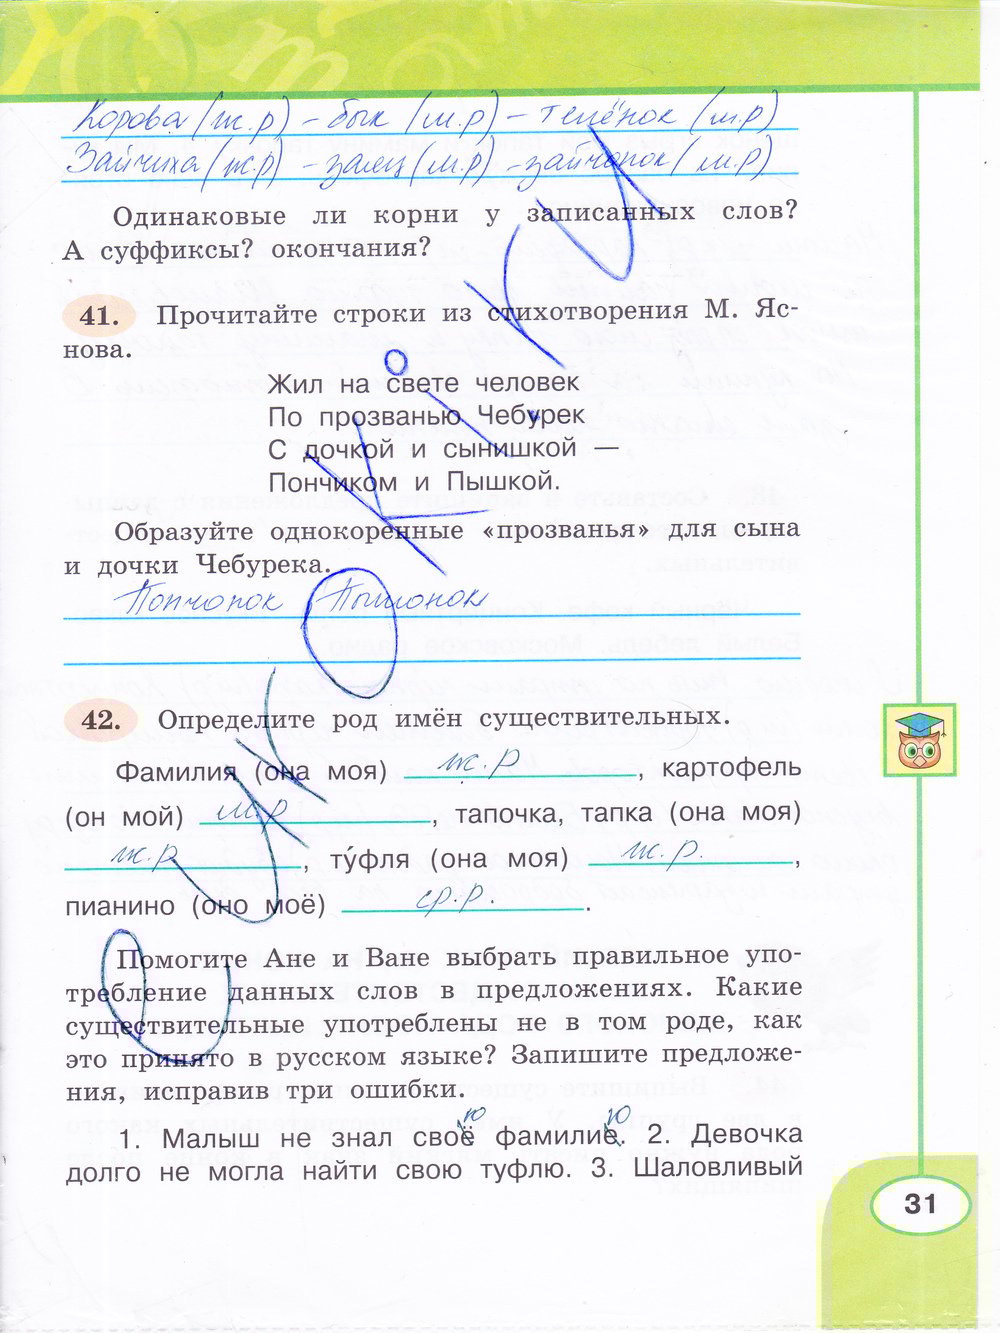 Корова (ж.р) – бык (м.р) – телёнок (м.р)
Зайчиха (ж.р) – заяц (м.р) – зайчонок (м.р)
Одинаковые ли корни у записанных слов?
А суффиксы? окончания?
41. Прочитайте строки из стихотворения М. Яс-
нова.
Жил на свете человек
По прозванью Чебурек
С дочкой и сынишкой —
Пончиком и Пышкой.
Образуйте однокоренные «прозванья» для сына
и дочки Чебурека.
Пончонок Пышонок
42. Определите род имён существительных.
Фамилия (она моя) ж.р, картофель
(он мой) м.р, тапочка, тапка (она моя)
ж.р, ту́фля (она моя) ж.р.,
пианино (оно моё) ср.р.
Помогите Ане и Ване выбрать правильное упо-
требление данных слов в предложениях. Какие
существительные употреблены не в том роде, как
это принято в русском языке? Запишите предложе-
ния, исправив три ошибки.
ю ю
1. Малыш не знал своё фамилие. 2. Девочка
долго не могла найти свою туфлю. 3. Шаловливый
31